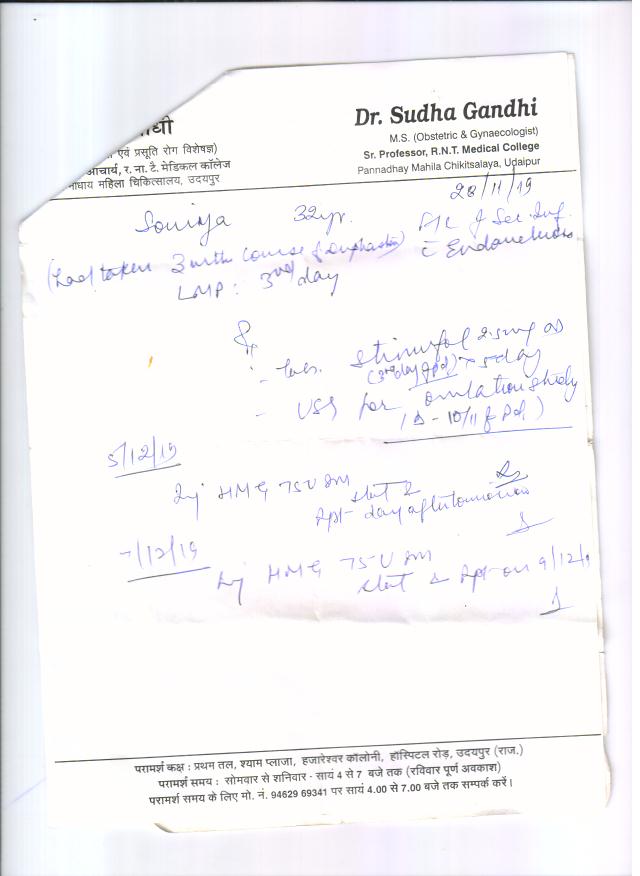 ांधी
एवं प्रसूति रोग विशेषज्ञ)
आचार्य, र. ना. टै. मेडिकल कॉलेज
नाधाय महिला चिकित्सालय, उदयपुर
Dr. Sudha Gandhi
M.S. (Obstetric & Gynaecologist)
Sr. Professor, R.N.T. Medical College
Pannadhay Mahila Chikitsalaya, Udaipur
28/11/19
32yr.
(had taken 3 mth course of
LMP : 3rd day
2.5mg
(3rd day of Pd) x 5day
- USS for ovulation study
(D - 10/11 of Pd)
5/12/19
Inj HMG 75U IM
stat &
Rpt- day after tomorrow
7/12/19
Inj HMG 75U IM
stat & Rpt on 9/12/19
परामर्श कक्ष : प्रथम तल, श्याम प्लाजा, हजारेश्वर कॉलोनी, हॉस्पिटल रोड़, उदयपुर (राज.)
परामर्श समय : सोमवार से शनिवार - सायं 4 से 7 बजे तक (रविवार पूर्ण अवकाश)
परामर्श समय के लिए मो. नं. 94629 69341 पर सायं 4.00 से 7.00 बजे तक सम्पर्क करें।